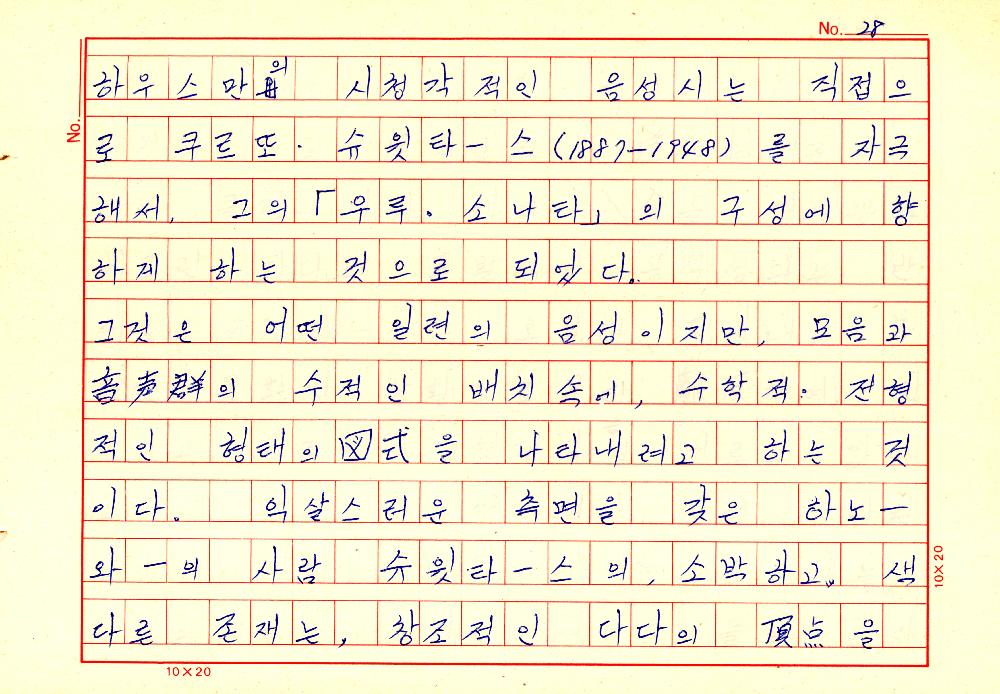 No. 28
하우스만의 시청각적인 음성시는 직접으
로 쿠르또·슈윗타ー스(1887-1948)를 자극
해서, 그의「우루·소나타」의 구성에 향
하게 하는 것으로 되었다.
그것은 어떤 일련의 음성이지만, 모음과
音声群의 수적인 배치속에, 수학적·전형
적인 형태의 図式을 나타내려고 하는 것
이다. 익살스러운 측면을 갖은 하노ー
와ー의 사람 슈윗타ー스의, 소박하고, 색
다른 존재는, 창조적인 다다의 頂点을
No.
10×20
10×20